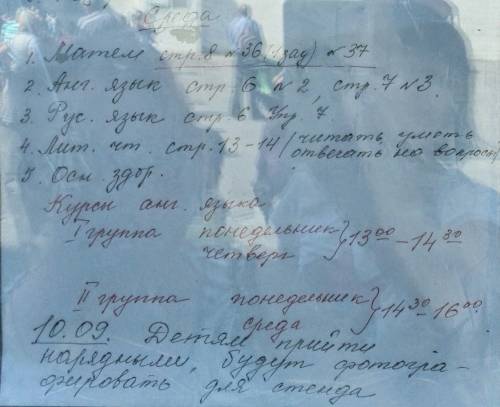 Среда
1. Матем стр. 8 №36 (1 зад) №37
2. Анг. язык стр. 6 №2, стр. 7 №3.
3. Рус. язык стр. 6 Упр. 7
4. Лит. чт. стр. 13-14 (читать, уметь
отвечать на вопросы
5. Осн. здор.
Курсы анг. языка
I группа понедельник
четверг } 13 00 - 14 30
II группа понедельник
среда } 14 30 16 00
10.09. Детям прийти
нарядными, будут фотогра-
фировать для стенда